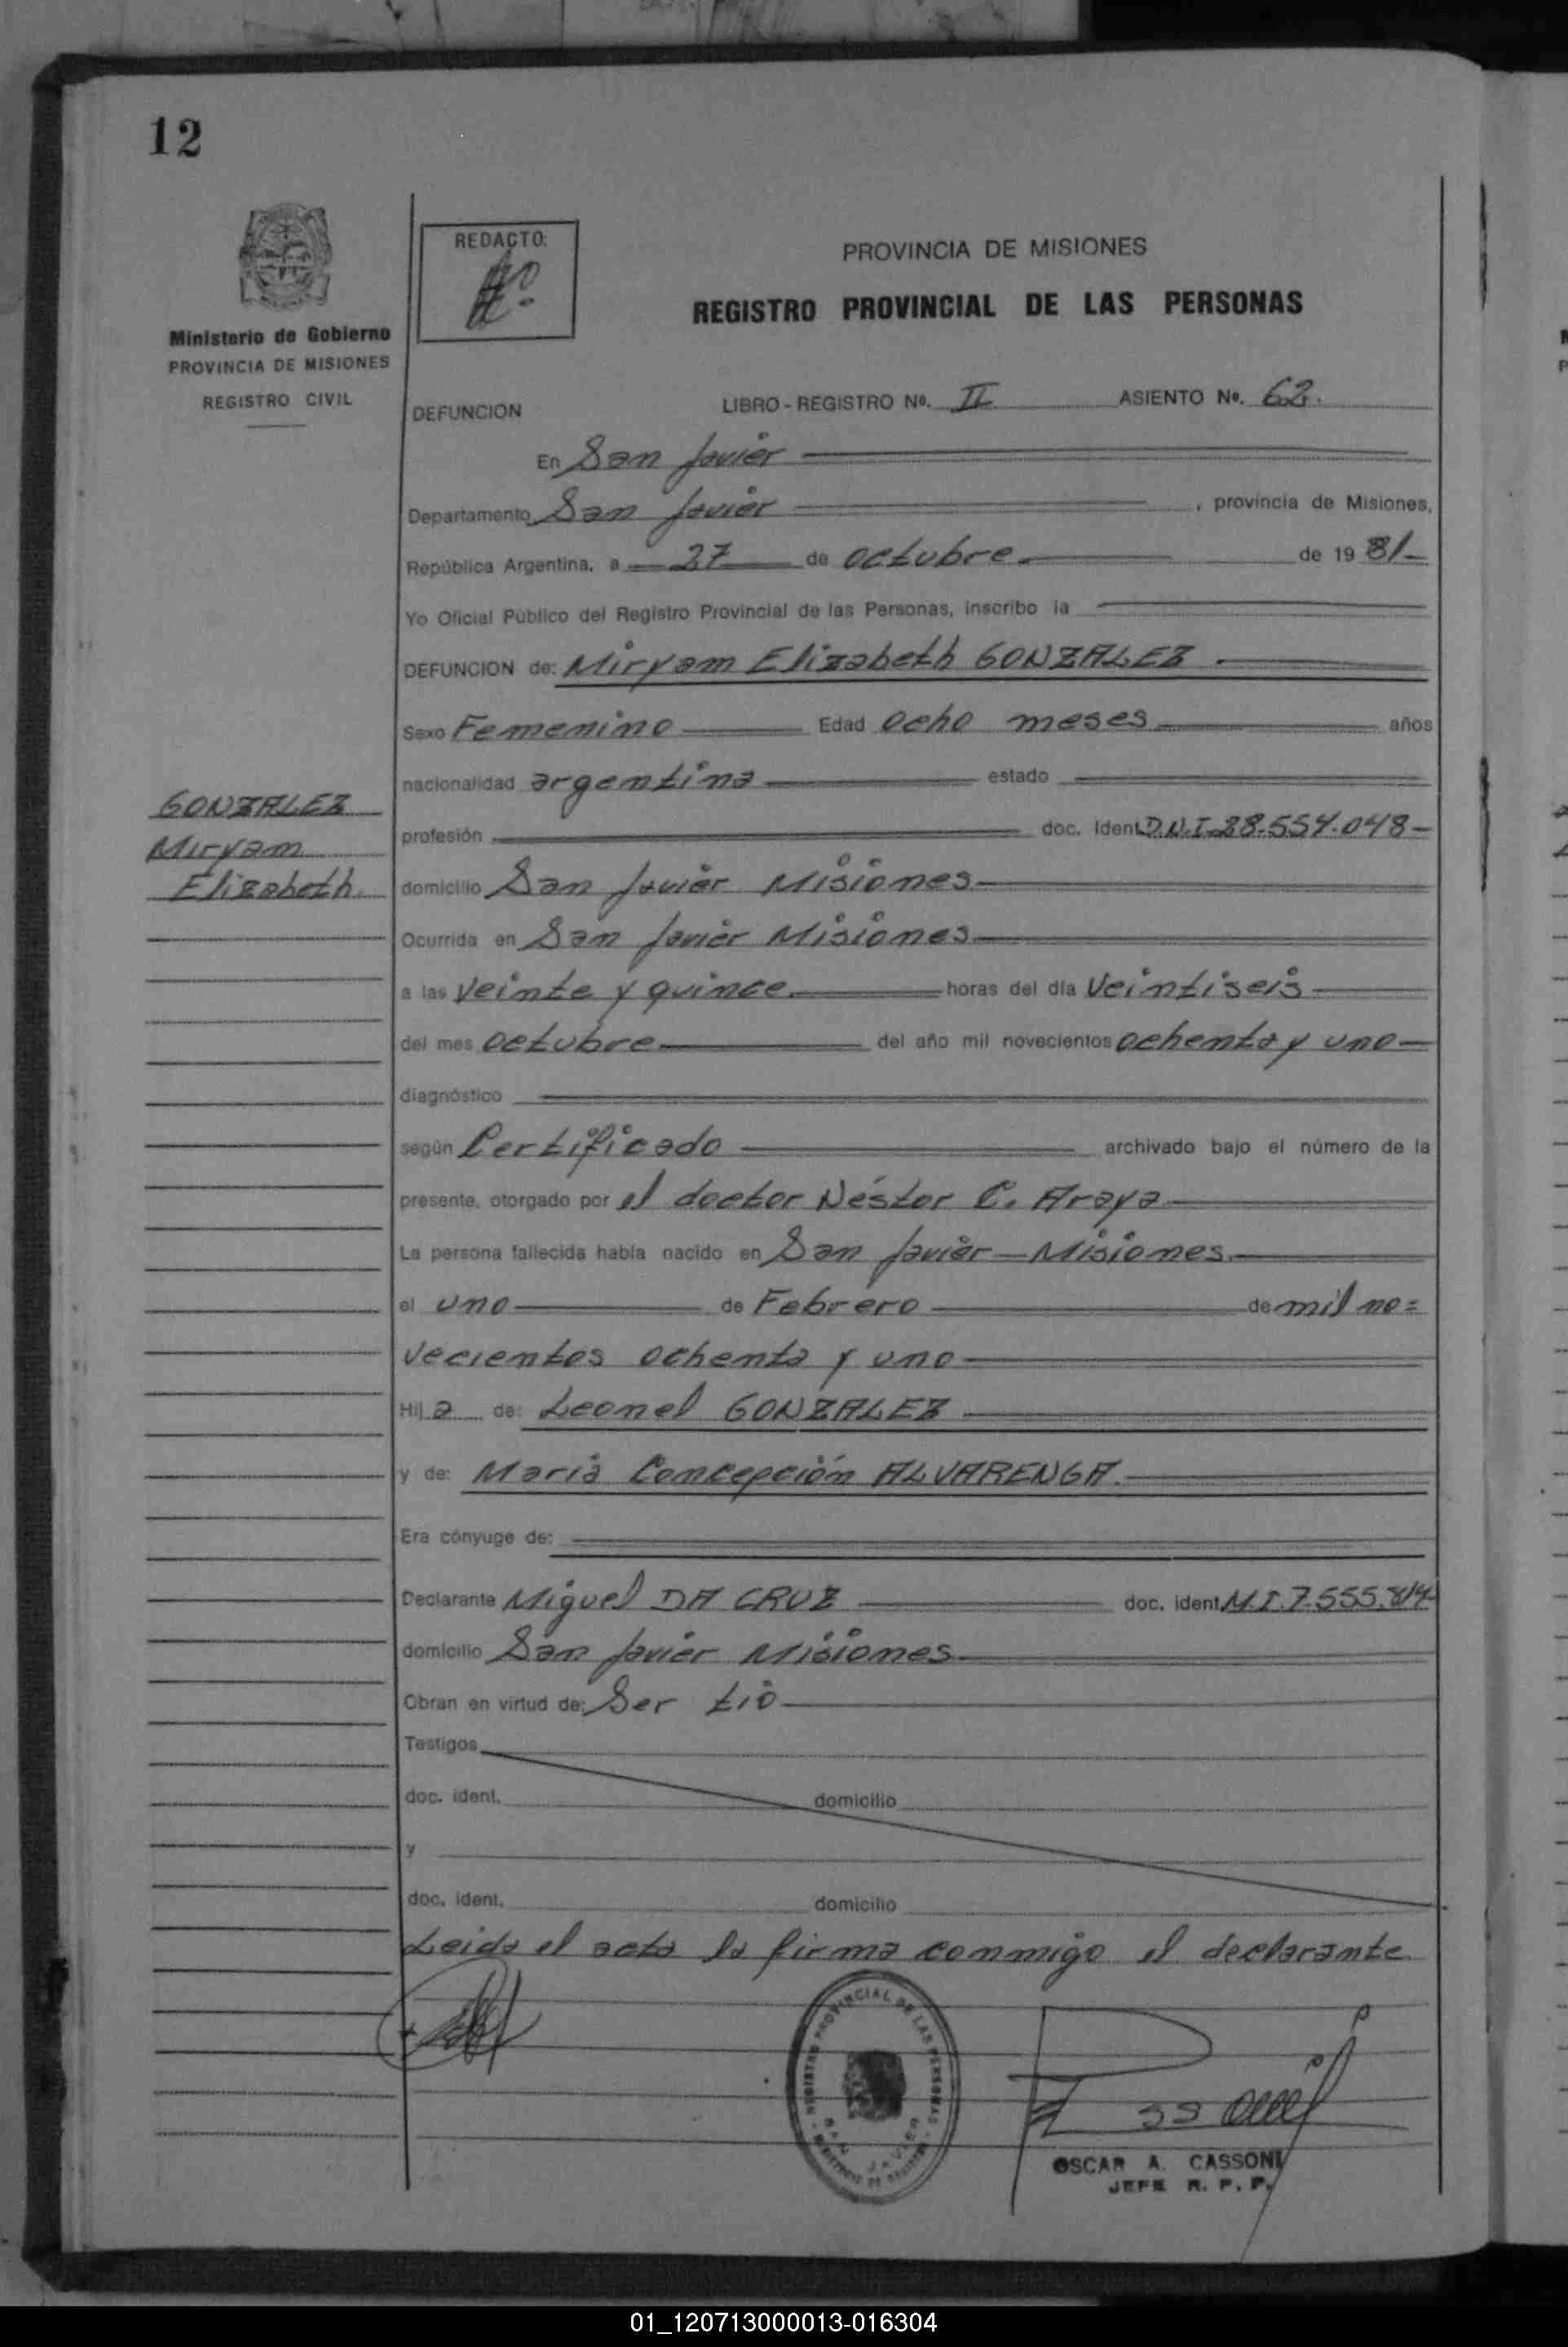 12
REDACTO:
PROVINCIA DE MISIONES
REGISTRO PROVINCIAL DE LAS PERSONAS
Ministerio de Gobierno
PROVINCIA DE MISIONES
REGISTRO CIVIL
DEFUNCION LIBRO - REGISTRO Nº. II ASIENTO Nº. 62.
En San Javier
Departamento San Javier , provincia de Misiones,
República Argentina, a 27 de octubre de 19 81
Yo Oficial Público del Registro Provincial de las Personas, inscribo la
DEFUNCION de: Miryam Elizabeth GONZALEZ
Sexo Femenino Edad ocho meses años
nacionalidad argentina estado
GONZALEZ
Miryam
Elizabeth
profesión doc. ident. D.N.I. 28.554.048
domicilio San Javier Misiones
Ocurrida en San Javier Misiones
a las veinte y quince horas del día veintiseis
del mes octubre del año mil novecientos ochenta y uno
diagnóstico
según Certificado archivado bajo el número de la
presente, otorgado por el doctor Néstor C. Araya
La persona fallecida había nacido en San Javier - Misiones.
el uno de Febrero de mil no=
vecientos ochenta y uno
Hij a de: Leonel GONZALEZ
y de: María Concepción ALVARENGA.
Era cónyuge de:
Declarante Miguel DA CRUZ doc. ident. M.I. 7.555.814
domicilio San Javier Misiones
Obran en virtud de: Ser tío
Testigos
doc. ident. domicilio
y
doc. ident. domicilio
Leida el acta la firma conmigo el declarante
REGISTRO PROVINCIAL DE LAS PERSONAS
SAN JAVIER
OSCAR A. CASSONI
JEFE R. P. P.
01_120713000013-016304